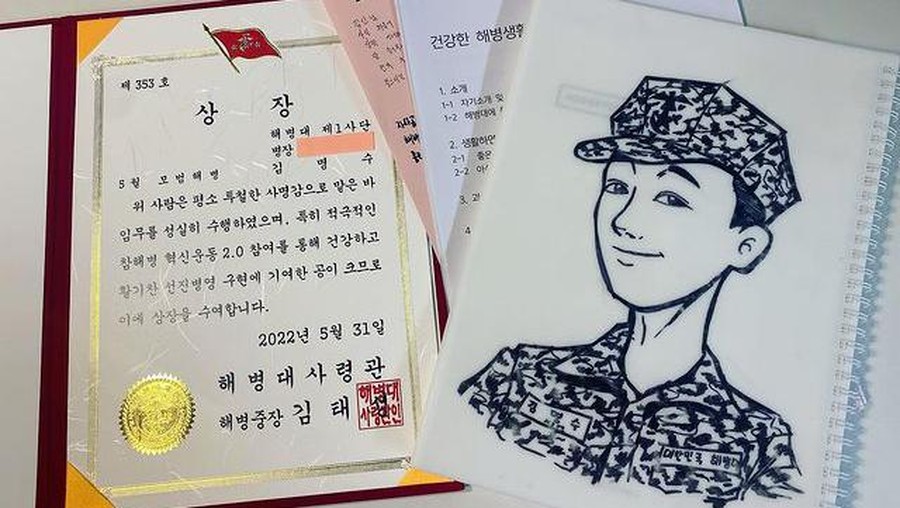 제 353 호
상 장
해병대 제1사단
병장
김 명 수
5월 모범해병
위 사람은 평소 투철한 사명감으로 맡은 바
임무를 성실히 수행하였으며, 특히 적극적인
참해병 혁신운동 2.0 참여를 통해 건강하고
활기찬 선진병영 구현에 기여한 공이 크므로
이에 상장을 수여합니다.
2022년 5월 31일
해병대사령관
해병중장 김 태
해병대
사령관인
건강한 해병생활
1. 소개
1-1 자기소개 및
1-2 해병대에
2. 생활하면
2-1 좋은
2-2
3.
4
김 명 수
대한민국 해병대